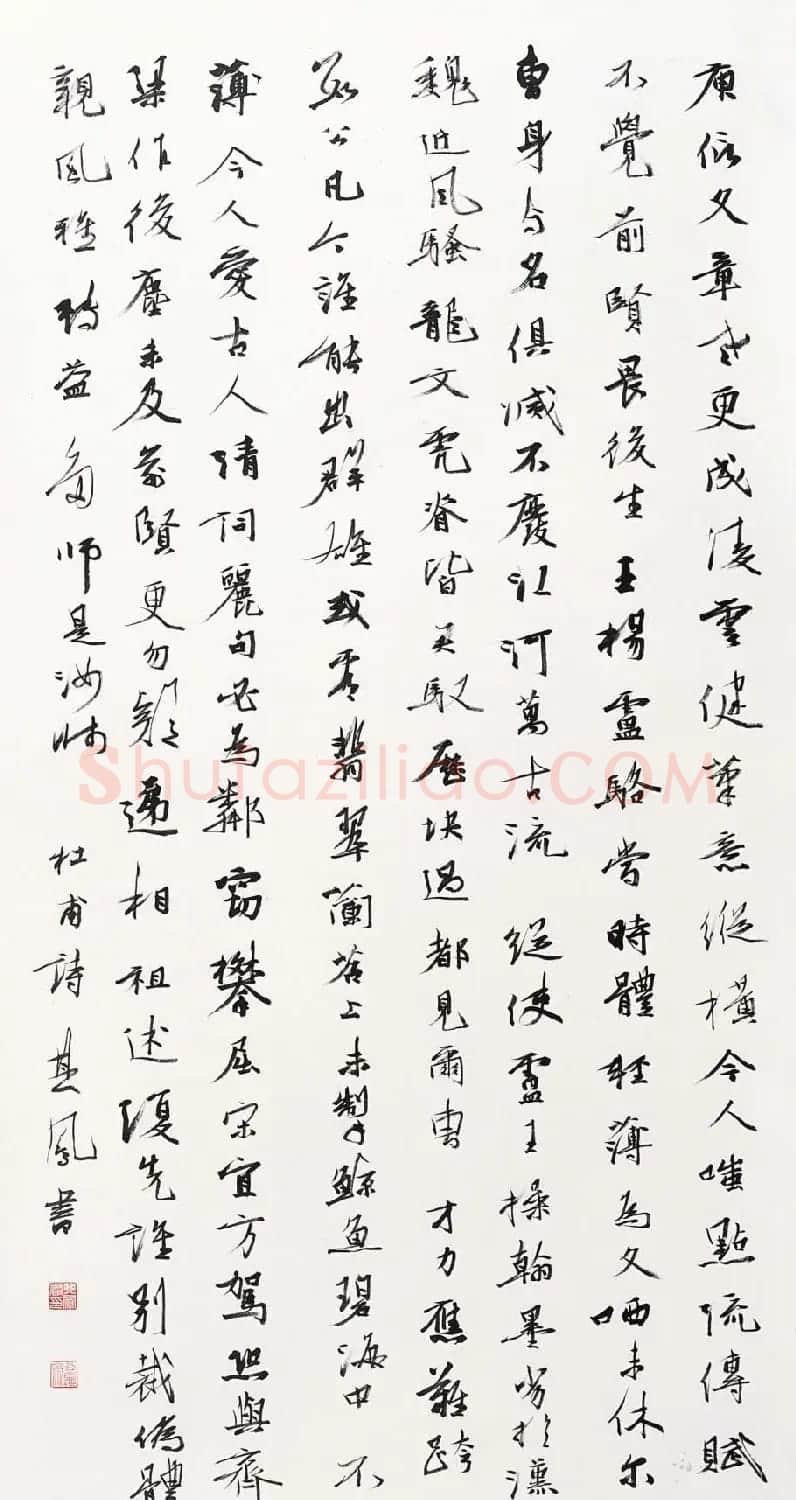 庾信文章老更成凌雲健筆意縱橫今人嗤點流傳賦
不覺前賢畏後生王楊盧駱當時體輕薄為文哂未休尔
曹身与名俱滅不廢江河萬古流縱使盧王操翰墨劣於漢
魏近風騷龍文虎脊皆君馭歷块過都見爾曹才力應難跨
數公凡今誰能出群雄或看翡翠蘭苕上未掣鯨魚碧海中不
薄今人愛古人清詞麗句必為鄰竊攀屈宋宜方駕恐與齊
梁作後塵未及前賢更勿疑遞相祖述復先誰别裁偽體
親風雅轉益多師是汝師 杜甫詩 鳳書
Shufaziliao.COM